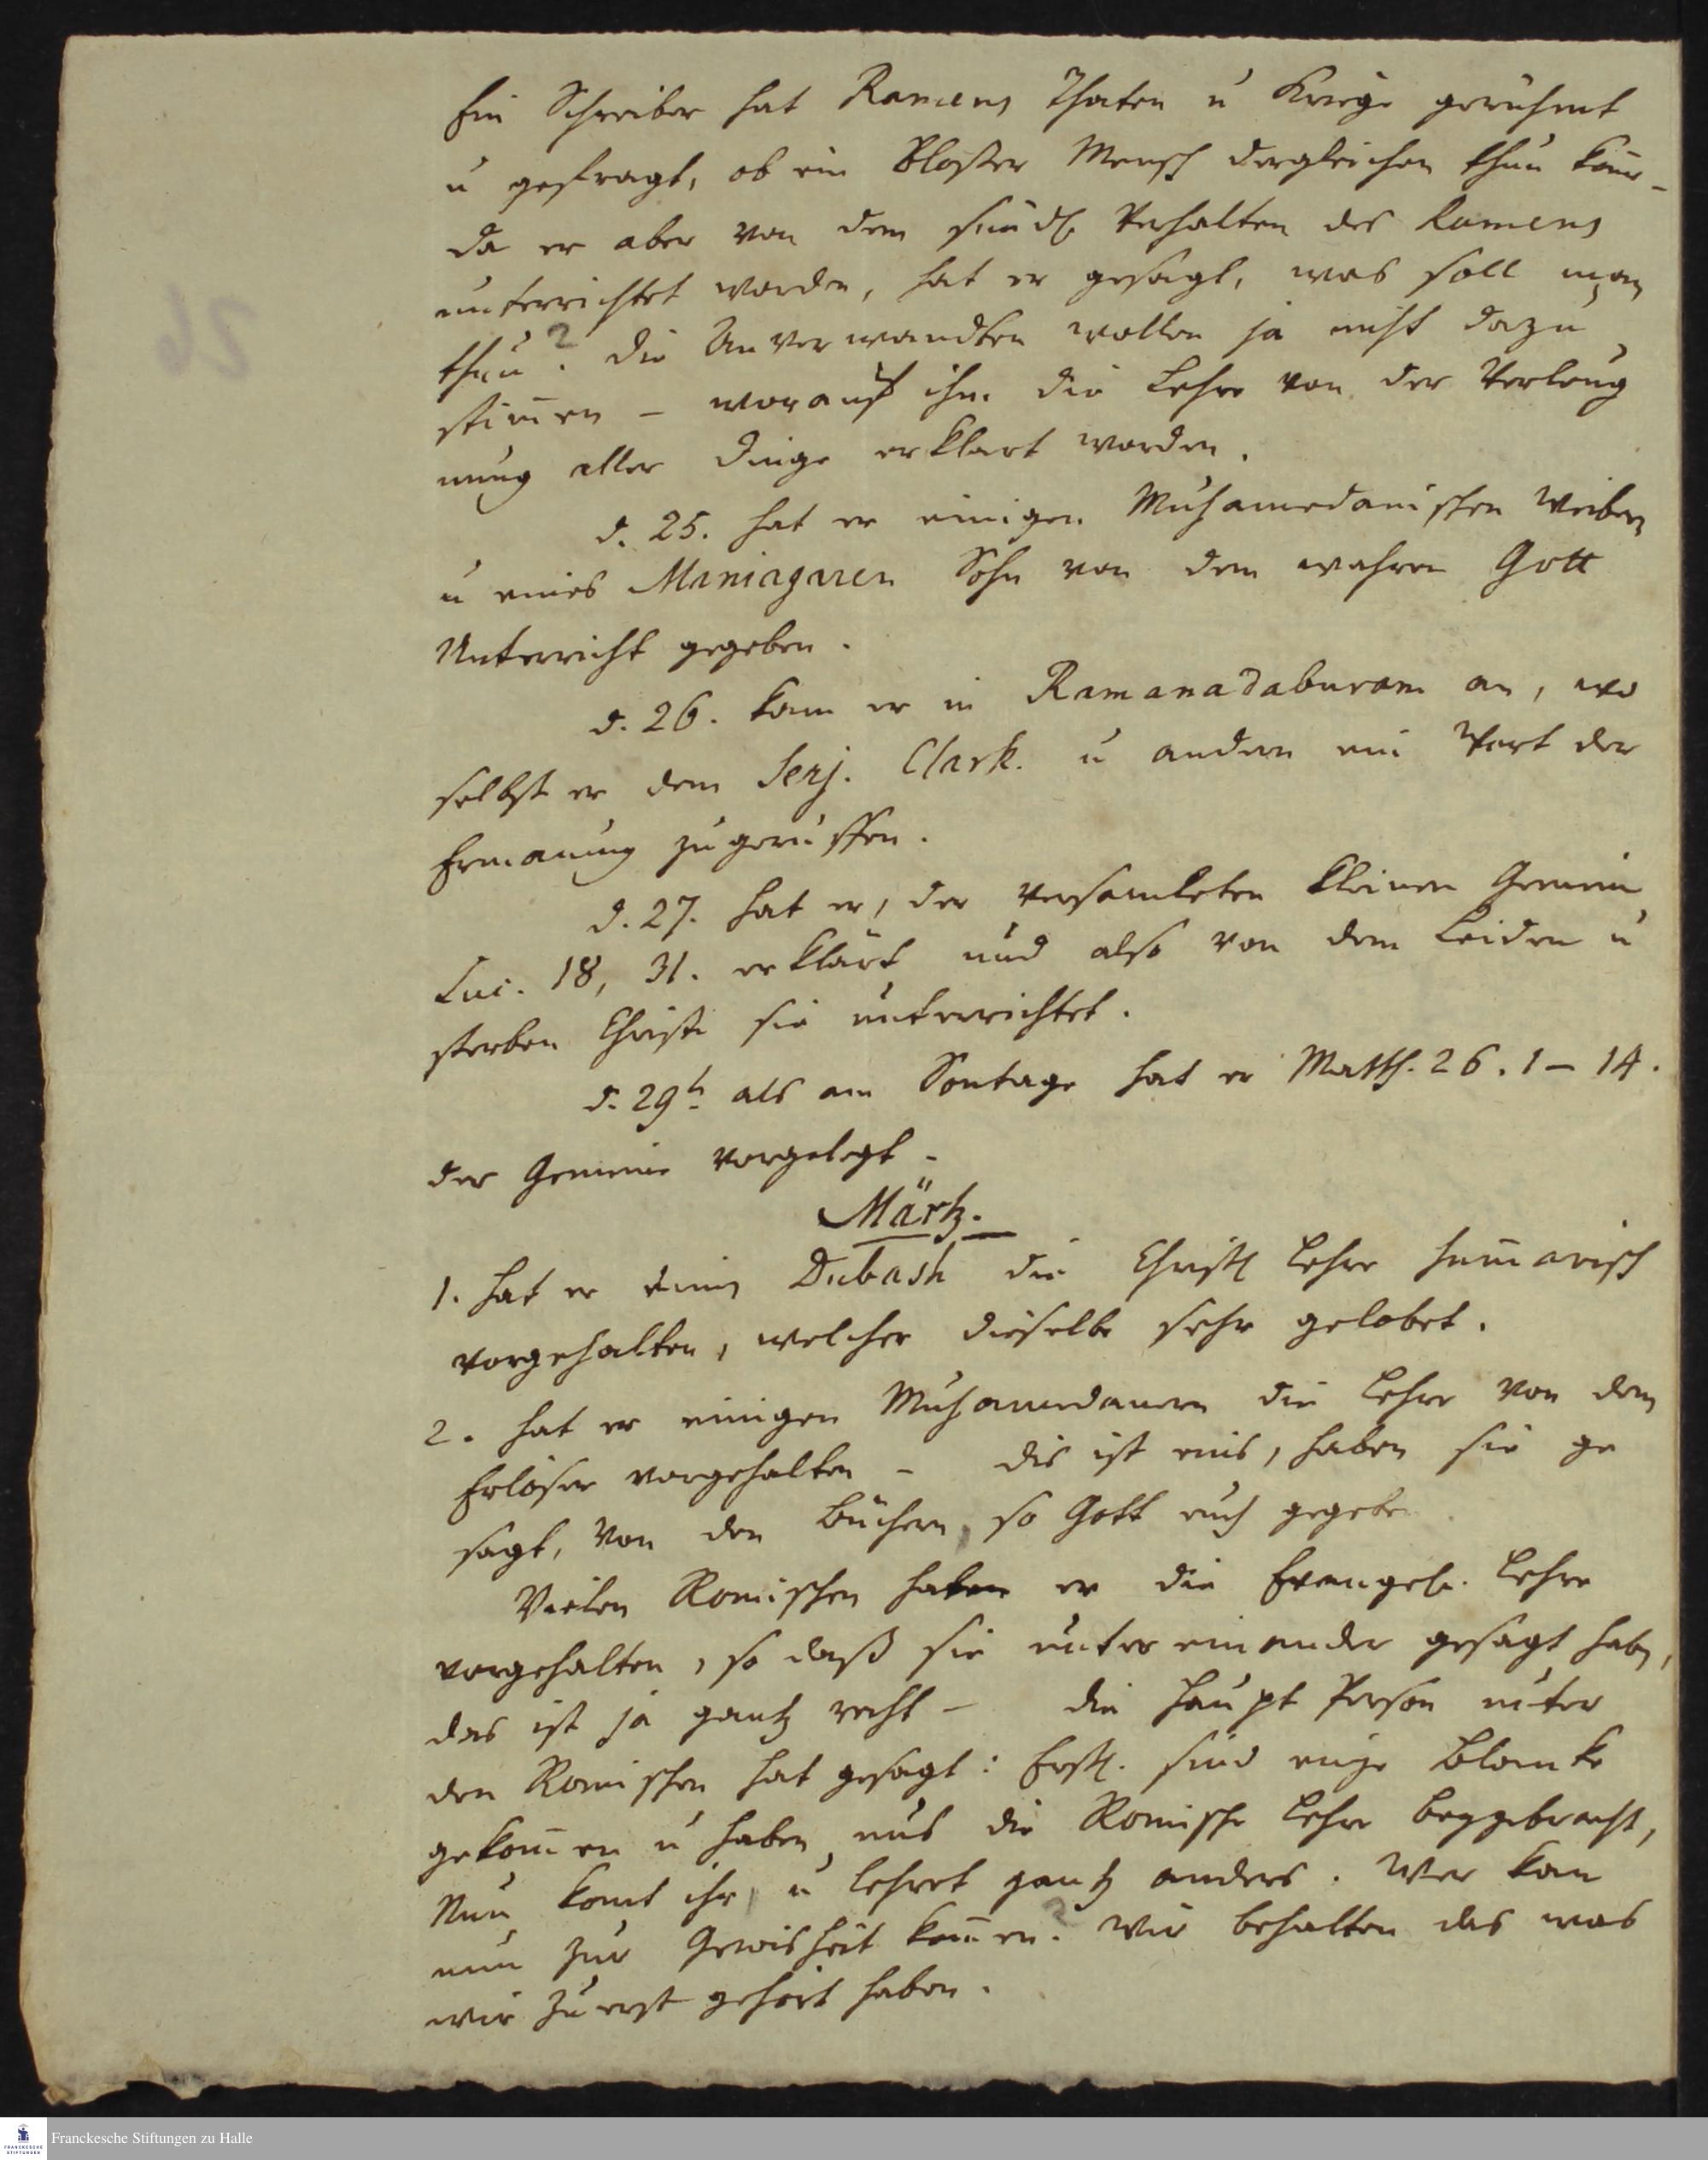 Ein Schreiber hat Ramens Thaten u Kriege gerühmt
u gefragt, ob ein Bloßer Mensch dergleichen thun könne-
da er aber von dem sündl. Verhalten des Ramens
unterrichtet worden, hat er gesagt, was soll man
thun? die Anverwandten wollen ja nicht dazu
stim̄en - worauf ihm die Lehre von der Verleug
nung aller Dinge erklärt worden.
d. 25. hat er einigen Muhamedanischen Weibern
u eines Maniagaren Sohn von dem wahren Gott
Unterricht gegeben.
d. 26. kam er in Ramanadaburam an, wo
selbst er dem Serj. Clark. u andern ein Wort der
Ermanung zugeruffen.
d. 27. hat er, der versamleten kleinen Gemein
Luc. 18, 31. erklärt und also von dem Leiden u
sterben Christi sie unterrichtet.
d. 29t. als am Sontage hat er Matth. 26. 1 - 14.
der Gemeine vorgelegt -
Märtz.
1. hat er einem Dubash die Christl Lehre sum̄arisch
vorgehalten, welcher dieselbe sehr gelobet.
2. hat er einigen Muhamedanern die Lehre von dem
Erlöser vorgehalten - dis ist eins, haben sie ge
sagt, von den Büchern, so Gott euch gegeben
Vielen Römischen haben er die Evangel. Lehre
vorgehalten, so daß sie unter einander gesagt haben,
das ist ja gantz recht - die Haupt Person unter
den Römischen hat gesagt: Erstl. sind einige Blanke
gekom̄en u haben uns die Römische Lehre beygebracht,
Nun komt ihr u lehret gantz anders. Wer kan
nun zur Gewisheit kom̄en? Wir behalten das was
wir zu erst gehört haben.
26
Franckesche Stiftungen zu Halle
FRANCKESCHE
STIFTUNGEN